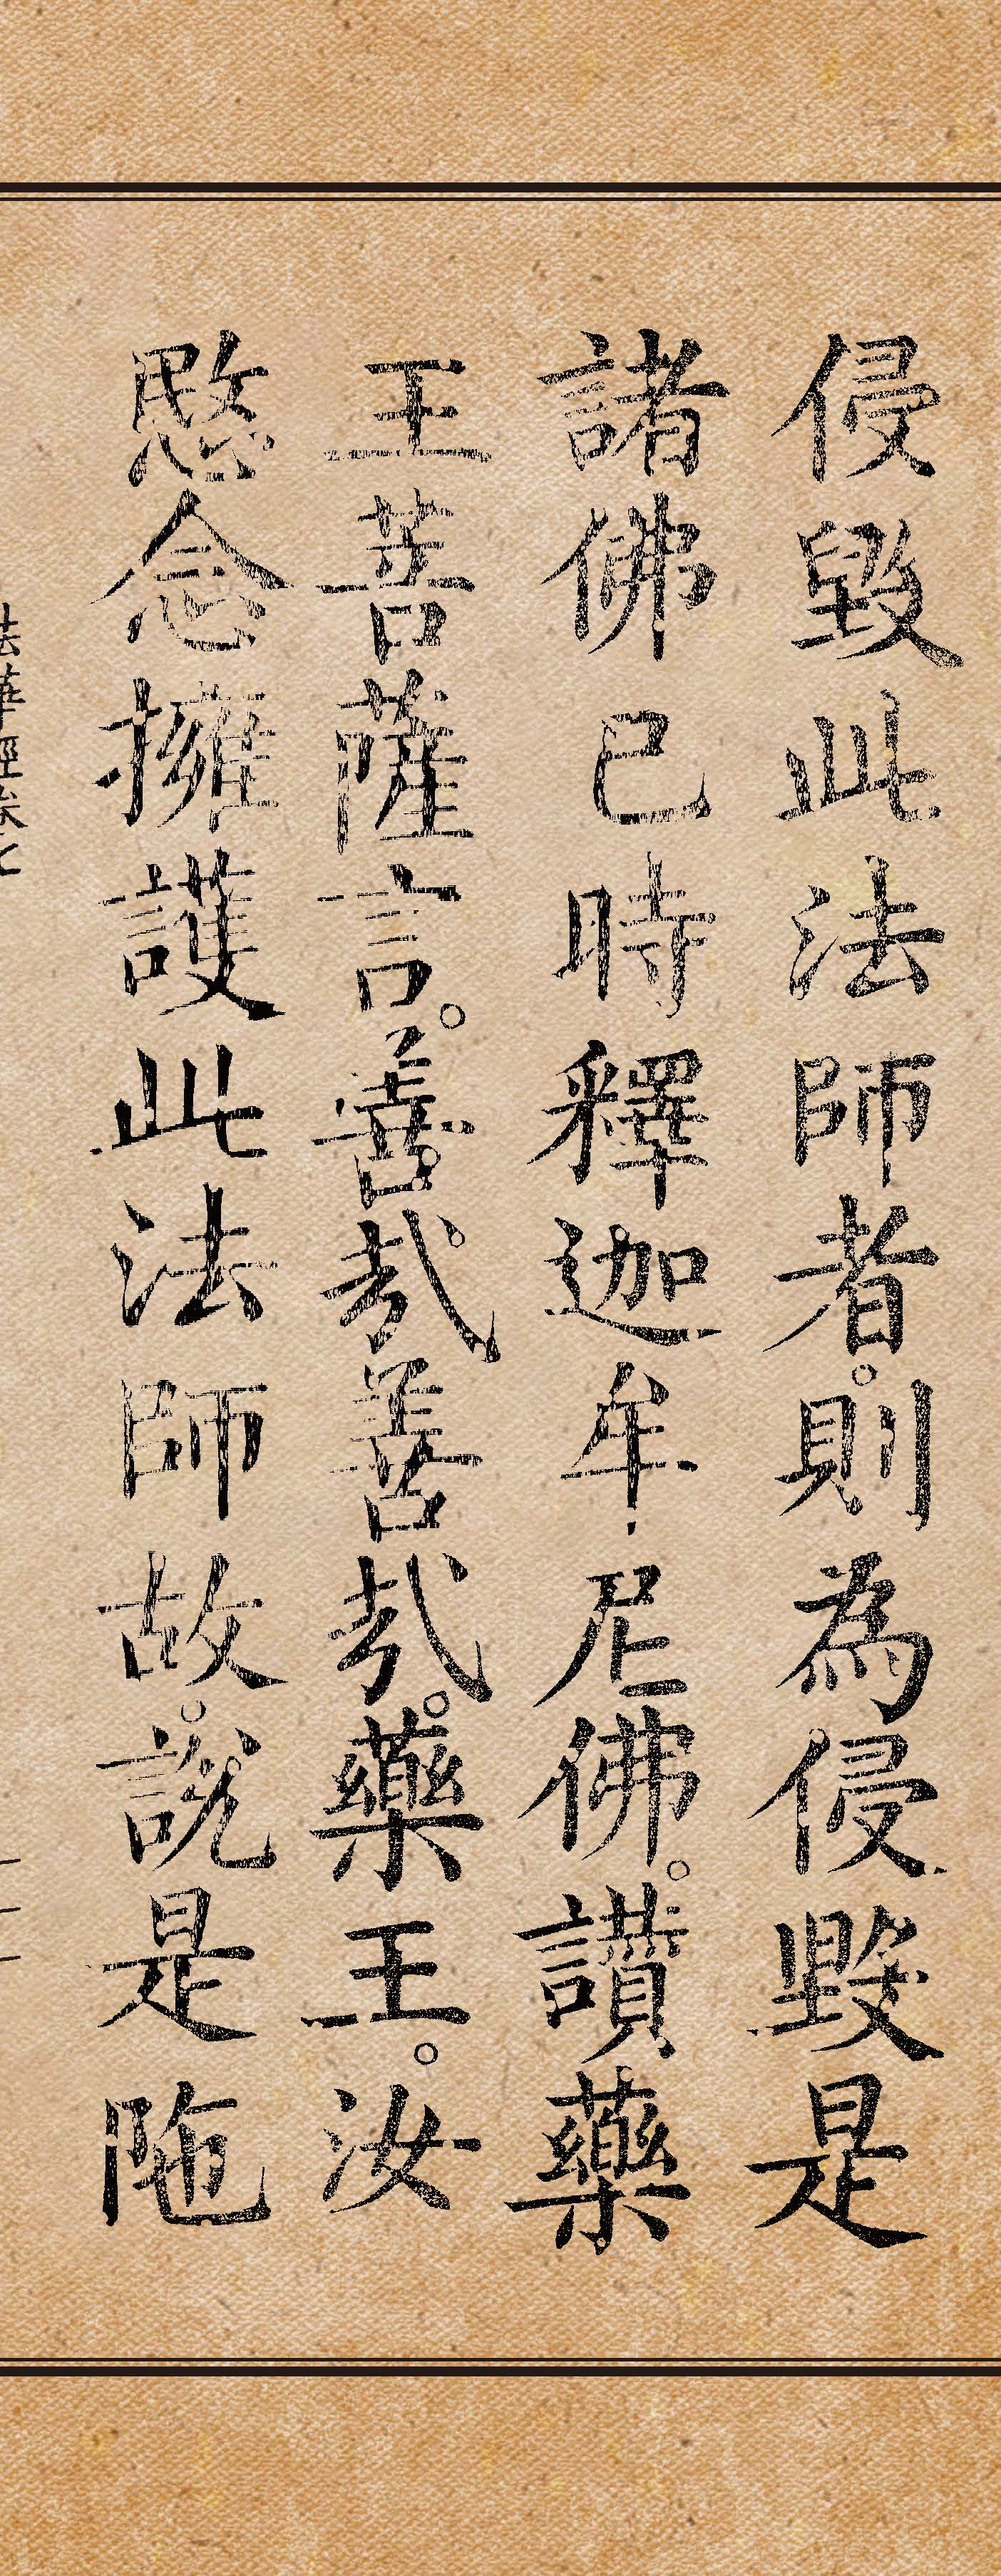 侵毀此法師者。則為侵毀是
諸佛已時釋迦牟尼佛。讚藥
王菩薩言。善哉善哉。藥王。汝
愍念擁護此法師故。說是陁
法華經卷七